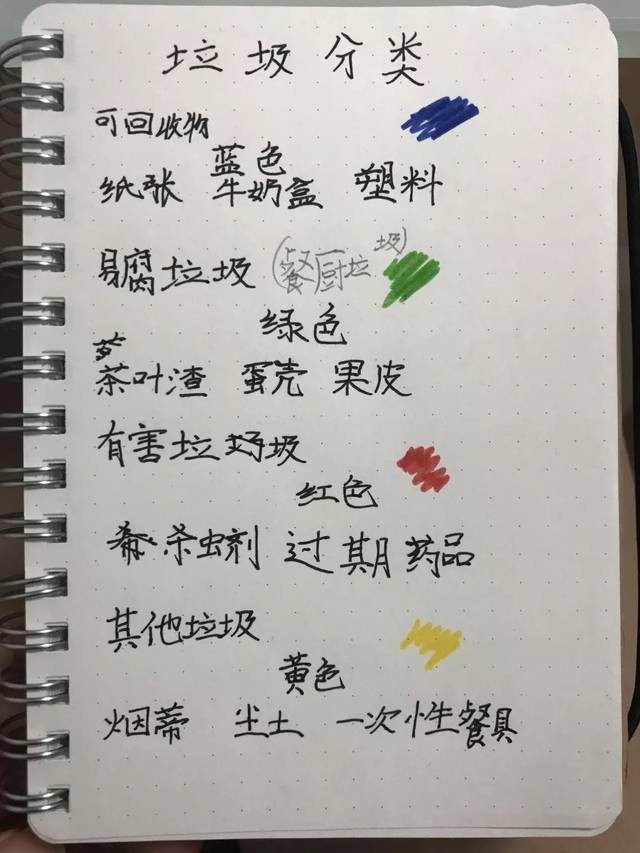 垃圾分类
可回收物
蓝色
纸张 牛奶盒 塑料
易腐垃圾(餐厨垃圾)
绿色
茶叶渣 蛋壳 果皮
有害垃圾
红色
杀虫剂 过期药品
其他垃圾
黄色
烟蒂 尘土 一次性餐具